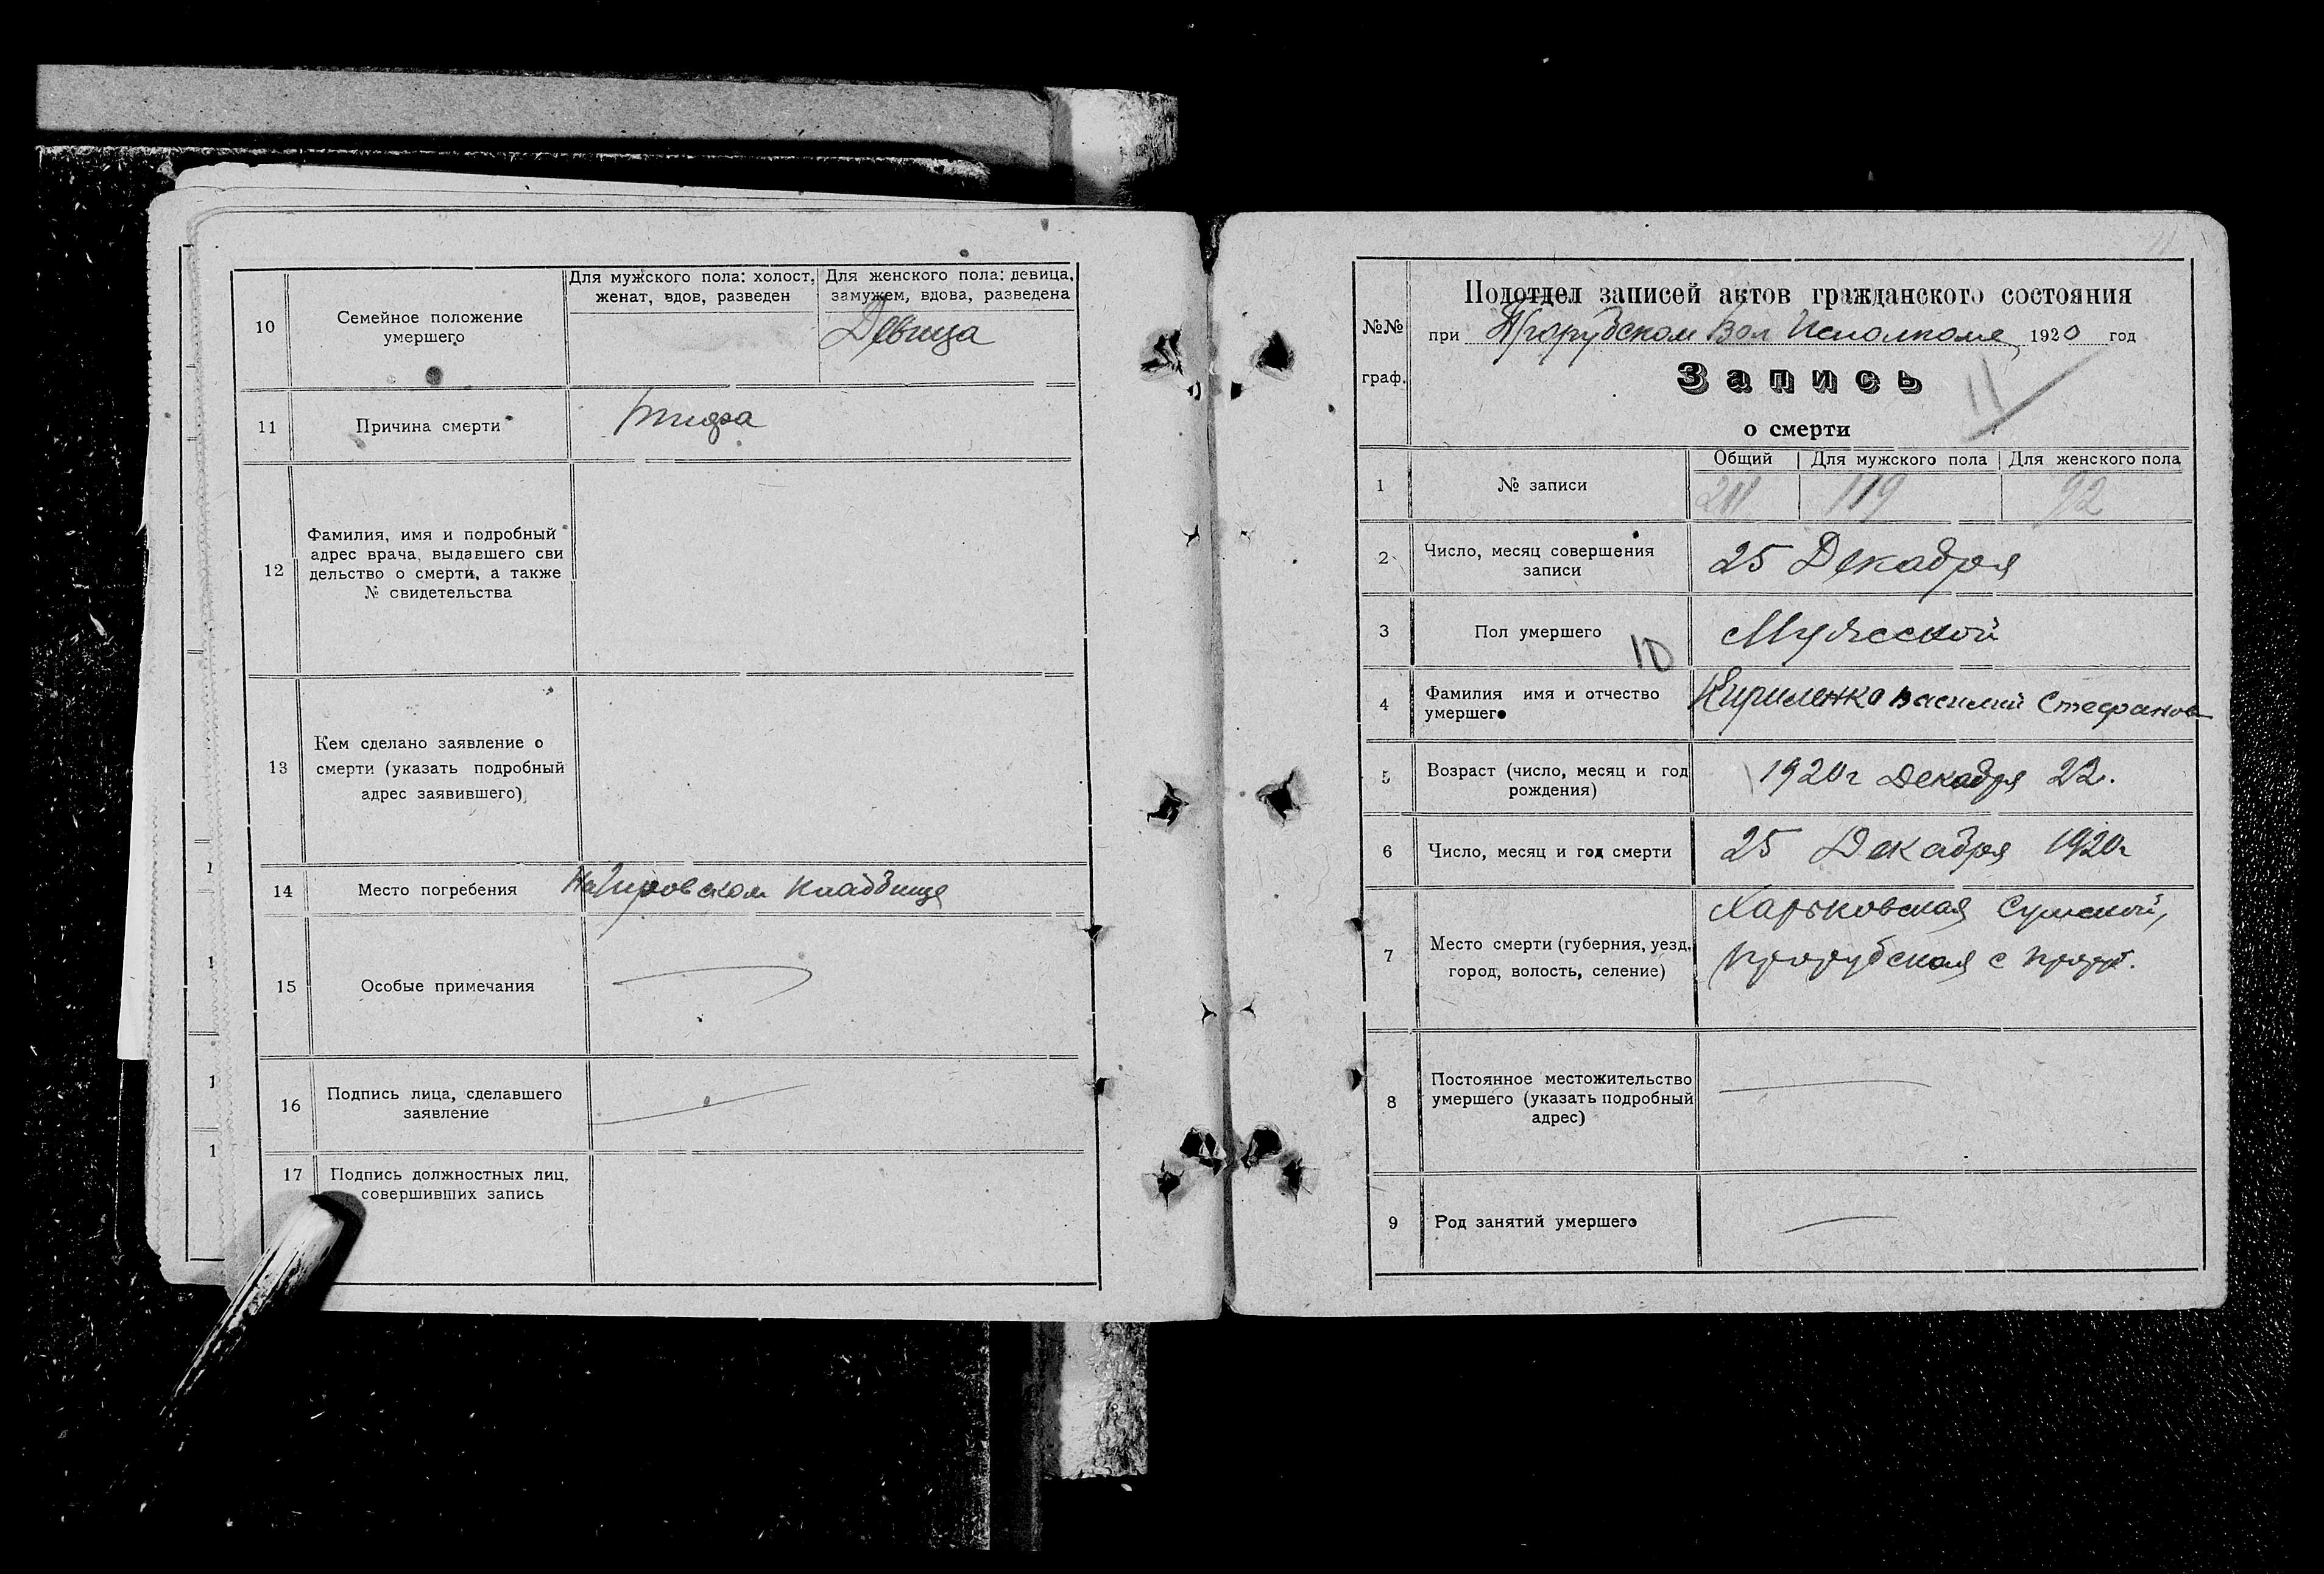 10
Семейное положение
умершего
Для мужского пола: холост,
женат, вдов, разведен
Для женского пола: девица,
замужем, вдова, разведена
Девица
11
Причина смерти
тифа
12
Фамилия, имя и подробный
адрес врача, выдавшего сви
дельство о смерти, а также
№ свидетельства
13
Кем сделано заявление о
смерти (указать подробный
адрес заявившего)
14
Место погребения
На кладбище
15
Особые примечания
16
Подпись лица, сделавшего
заявление
17
Подпись должностных лиц,
совершивших запись
1
1
1
1
№№
граф.
Подотдел записей актов гражданского состояния
при Прорубском Вол Исполкоме, 1920 год
Запись
11
о смерти
1
№ записи
Общий
Для мужского пола
Для женского пола
211
119
92
2
Число, месяц совершения
записи
25 Декабря
3
Пол умершего
Мужеской
10
4
Фамилия имя и отчество
умершего
Кириленко Василий Стефанов
5
Возраст (число, месяц и год
рождения)
1920г Декабря 22.
6
Число, месяц и год смерти
25 Декабря 1920г
7
Место смерти (губерния, уезд,
город, волость, селение)
Харьковская Сумской,
Прорубская с Прору.
8
Постоянное местожительство
умершего (указать подробный
адрес)
9
Род занятий умершего